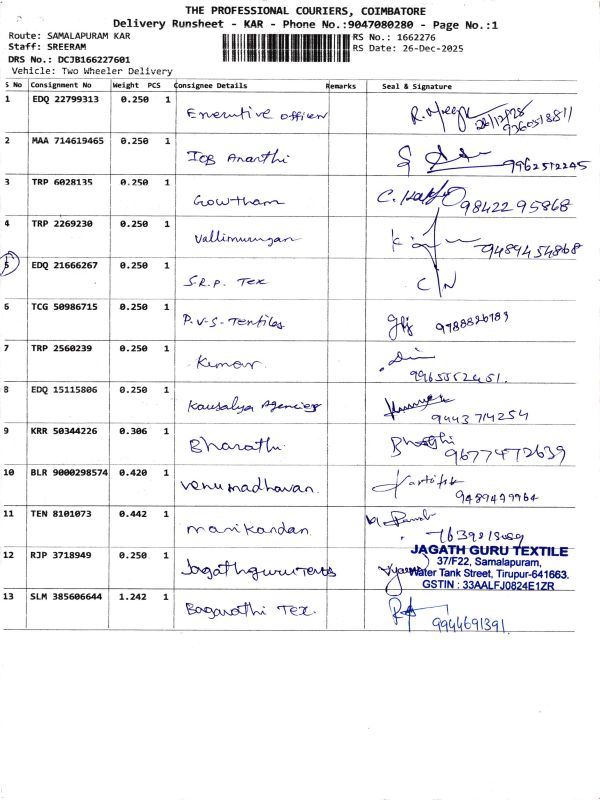 THE PROFESSIONAL COURIERS, COIMBATORE
Delivery Runsheet - KAR - Phone No.:9047080280 - Page No.:1
Route: SAMALAPURAM KAR
RS No.: 1662276
Staff: SREERAM
RS Date: 26-Dec-2025
DRS No.: DCJB166227601
Vehicle: Two Wheeler Delivery
S No Consignment No Weight PCS Consignee Details Remarks Seal & Signature
1 EDQ 22799313 0.250 1 Executive officer
2 MAA 714619465 0.250 1 IOB Ananthi 9962512245
3 TRP 6028135 0.250 1 Gowtham 9842295868
4 TRP 2269230 0.250 1 Vallimurugan 9489454868
5 EDQ 21666267 0.250 1 S.R.P. Tex C/N
6 TCG 50986715 0.250 1 P.V.S. Textiles
7 TRP 2560239 0.250 1 Kumar 9965552451.
8 EDQ 15115806 0.250 1 Kausalya Agencies 9443714254
9 KRR 50344226 0.306 1 Bharathi 9677472639
10 BLR 9000298574 0.420 1 Venumadhavan. 9489499964
11 TEN 8101073 0.442 1 Manikandan
12 RJP 3718949 0.250 1
JAGATH GURU TEXTILE
37/F22, Samalapuram,
Water Tank Street, Tirupur-641663.
GSTIN : 33AALFJ0824E1ZR
13 SLM 385606644 1.242 1 Bagarathi Tex. 9944691391